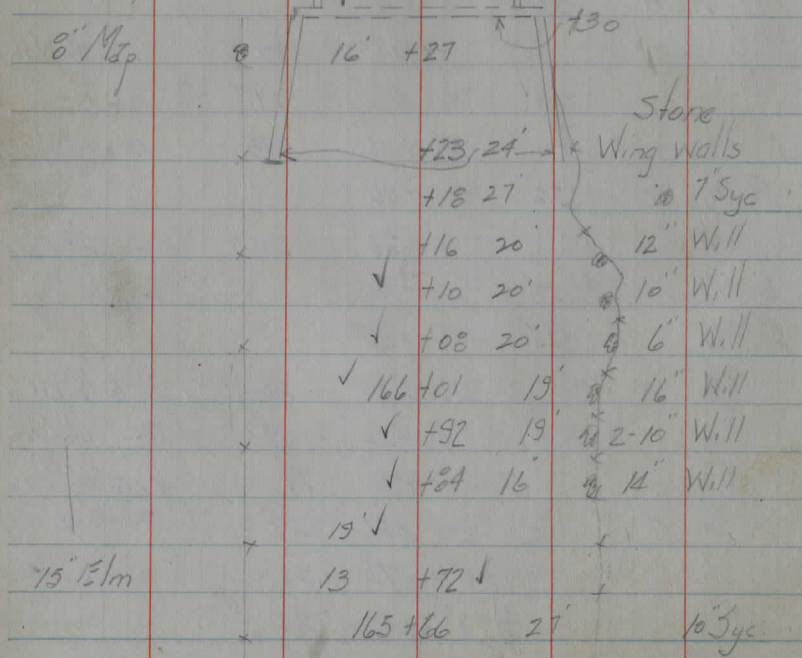 +30
8" Map 16' +27
Stone
+23, 24' Wing Walls
+18 27' 7" Syc
+16 20' 12" Will
✓ +10 20' 10" Will
✓ +08 20' 6" Will
✓ 166 +01 19' 16" Will
✓ +92 19' 2-10" Will
✓ +84 16' 14" Will
19' ✓
15" Elm 13 +72 ✓
165 +66 27' 10" Syc